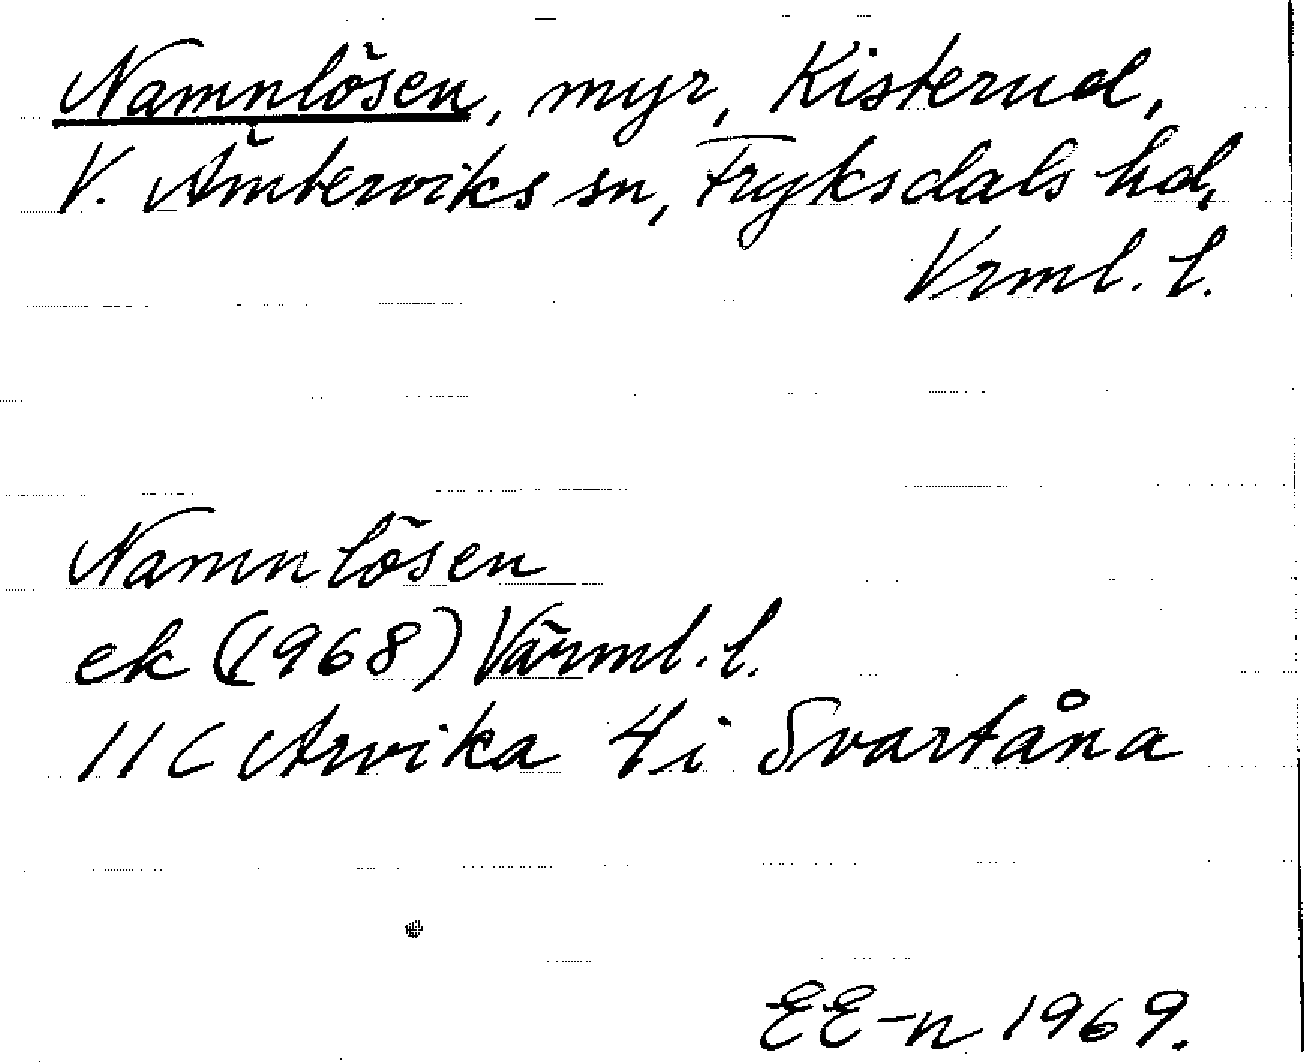 Namnlösen, myr, Kisterud,
V. Ämterviks sn, Fryksdals hd,
Vrml. l.
Namnlösen
ek (1968) Värml. l.
11 C Arvika 4i Svartåna
EE-n 1969.